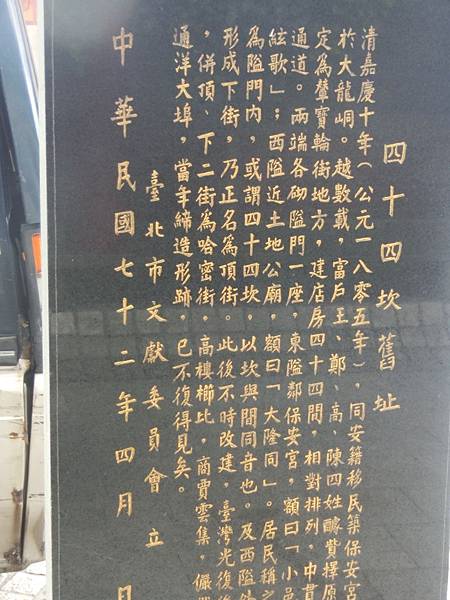 四十四坎舊址
清嘉慶十年（公元一八零五年），同安籍移民築保安宮
於大龍峒。越數載，富戶王、鄭、高、陳四姓醵貲擇原
定為輦寶輪街地方，建店房四十四間，相對排列，中貫
通道。兩端各砌隘門一座，東隘鄰保安宮，額曰「小邑
絃歌」；西隘近土地公廟，額曰「大隆同」。居民稱之
為隘門內，或謂四十四坎，以坎與間同音也。及西隘外
形成下街，乃正名為頂街。此後不時改建，臺灣光復後
，併頂、下二街為哈密街，高樓櫛比，商賈雲集，儼
通洋大埠，當年締造形跡，已不復得見矣。
臺北市文獻委員會立
中華民國七十二年四月 日